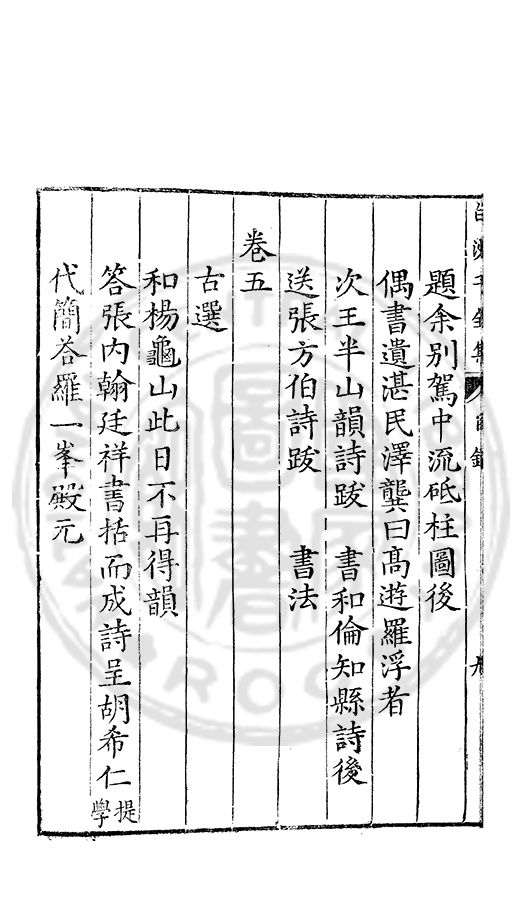 題余別駕中流砥柱圖後
偶書遺湛民澤龔曰高遊羅浮者
次王半山韻詩跋　書和倫知縣詩後
送張方伯詩跋　書法
卷五
古選
和楊龜山此日不再得韻
答張內翰廷祥書括而成詩呈胡希仁提學
代簡答羅一峯殿元